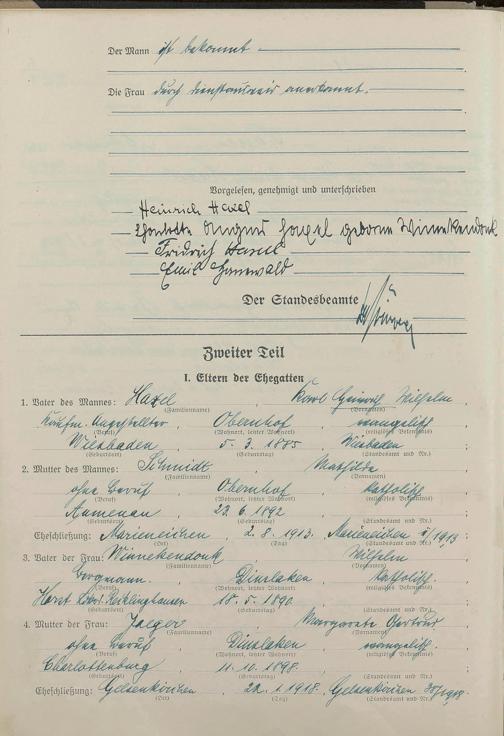 Der Mann ist bekannt
Die Frau durch anerkannt.
Vorgelesen, genehmigt und unterschrieben
Heinrich Haxel
Haxel geborene Winnekendonk
Fridrich Haxel
Emil
Der Standesbeamte
Zweiter Teil
I. Eltern der Ehegatten
1. Vater des Mannes: Haxel, Karl Heinrich Wilhelm,
(Familienname) (Vornamen)
Kaufm. Angestellter, Obernhof, evangelisch,
(Beruf) (Wohnort, letzter Wohnort) (religiöses Bekenntnis)
Wiesbaden, 5. 3. 1885 Wiesbaden
(Geburtsort) (Geburtstag) (Standesamt und Nr.)
2. Mutter des Mannes: Schmidt, Mathilde
(Familienname) (Vornamen)
ohne Beruf, Obernhof katholisch
(Beruf) (Wohnort, letzter Wohnort) (religiöses Bekenntnis)
Aumenau, 22. 6. 1892
(Geburtsort) (Geburtstag) (Standesamt und Nr.)
Eheschließung: 2. 8. 1913.
(Ort) (Tag) (Standesamt und Nr.)
3. Vater der Frau: Winnekendonk, Wilhelm,
(Familienname) (Vornamen)
Bergmann, Dinslaken, katholisch,
(Beruf) (Wohnort, letzter Wohnort) (religiöses Bekenntnis)
Recklinghausen 10. 5. 1890
(Geburtsort) (Geburtstag) (Standesamt und Nr.)
4. Mutter der Frau: Jaeger, Margarete Gertrud
(Familienname) (Vornamen)
ohne Beruf, Dinslaken, evangelisch.
(Beruf) (Wohnort, letzter Wohnort) (religiöses Bekenntnis)
Charlottenburg, 11. 10. 1898.
(Geburtsort) (Geburtstag) (Standesamt und Nr.)
Eheschließung: Gelsenkirchen 1918. Gelsenkirchen
(Ort) (Tag) (Standesamt und Nr.)